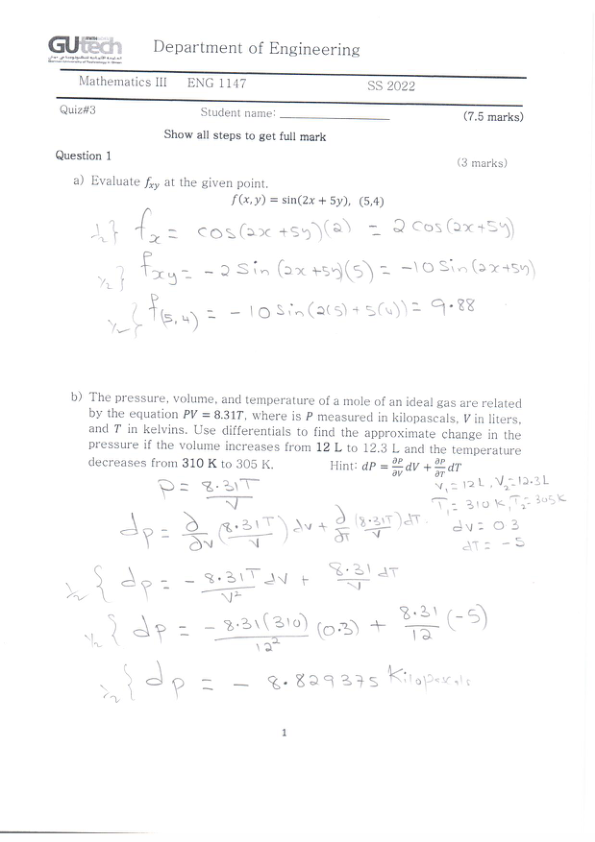 GUtech
Department of Engineering
Mathematics III ENG 1147 SS 2022
Quiz#3 Student name: ____________________ (7.5 marks)
Show all steps to get full mark
Question 1 (3 marks)
a) Evaluate fxy at the given point.
f(x, y) = sin(2x + 5y), (5,4)
1/2} fx = cos(2x+5y)(2) = 2 cos(2x+5y)
1/2} fxy = -2 sin (2x+5y)(5) = -10 sin(2x+5y)
1/2{ f(5,4) = -10 sin(2(5)+5(4)) = 9.88
b) The pressure, volume, and temperature of a mole of an ideal gas are related
by the equation PV = 8.31T, where is P measured in kilopascals, V in liters,
and T in kelvins. Use differentials to find the approximate change in the
pressure if the volume increases from 12 L to 12.3 L and the temperature
decreases from 310 K to 305 K. Hint: dP = ∂P/∂V dV + ∂P/∂T dT
P = 8.31T/V
V1 = 12L, V2 = 12.3L
T1 = 310K, T2 = 305K
dp = ∂/∂v (8.31T/V) dv + ∂/∂T (8.31T/V) dT.
dv = 0.3
dT = -5
1/2{ dp = -8.31T/V² dv + 8.31/V dT
1/2{ dp = -8.31(310)/12² (0.3) + 8.31/12 (-5)
1/2{ dp = -8.829375 Kilopascals
1